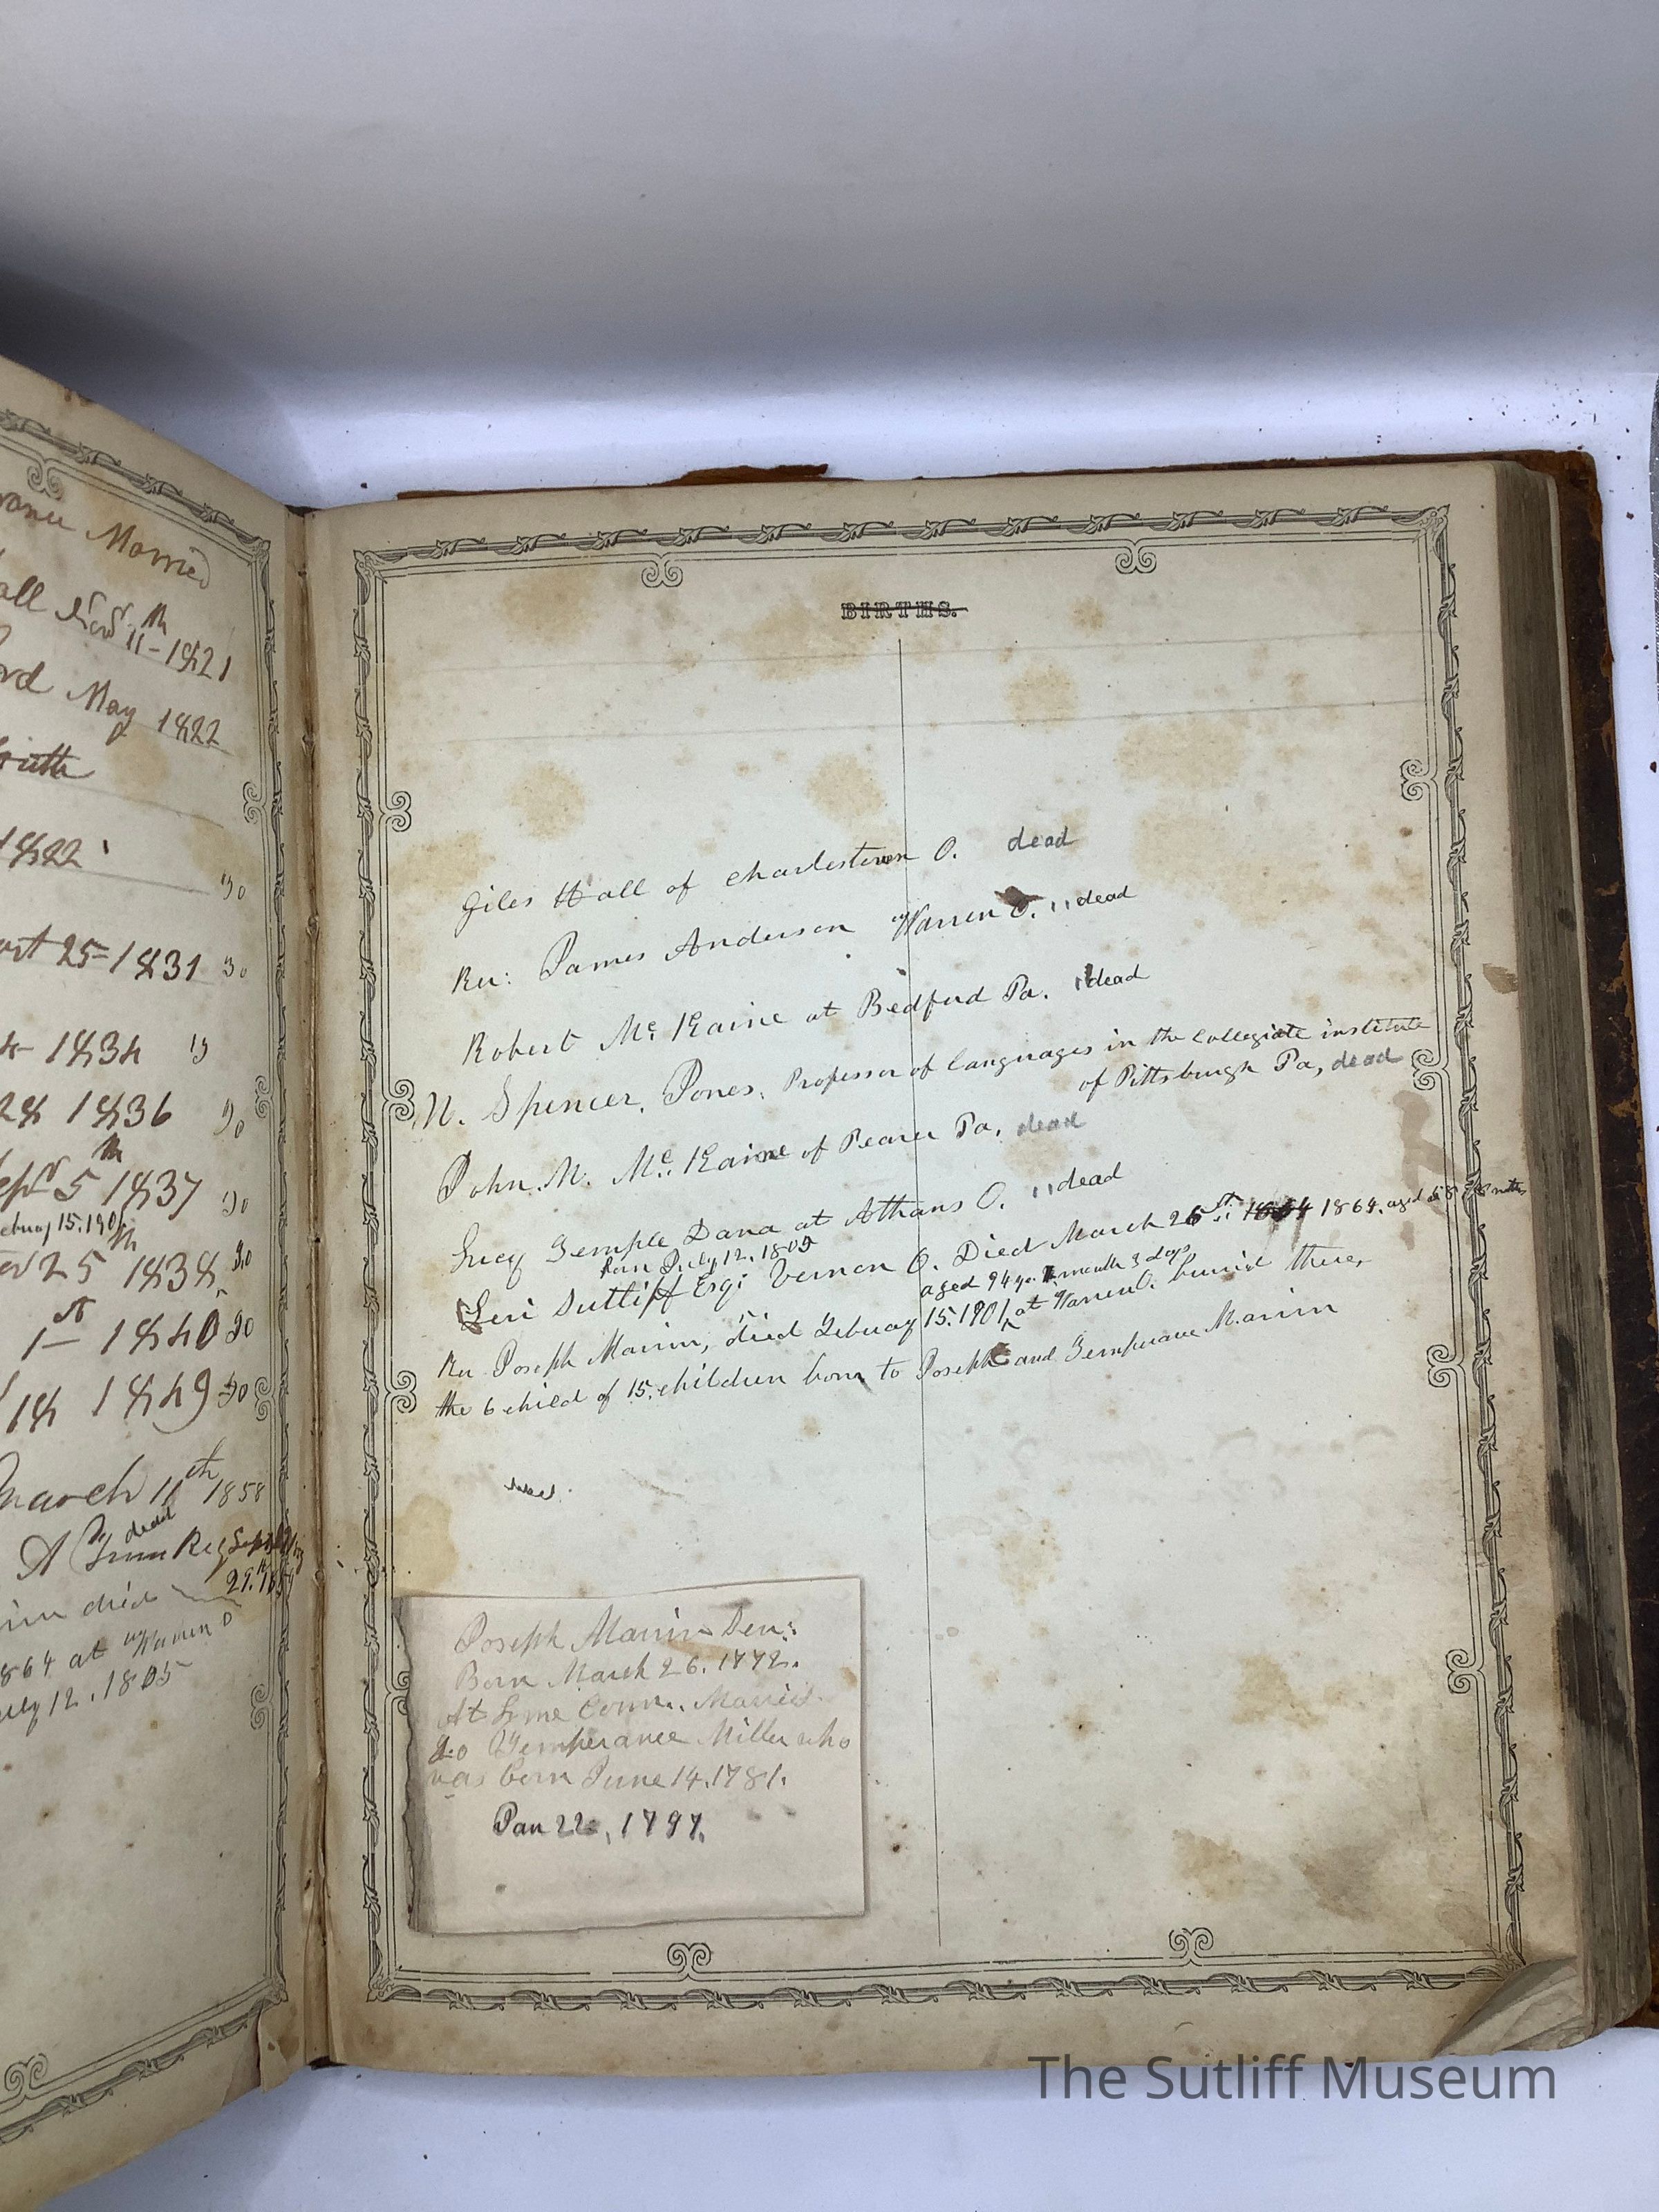 Married
all Nov 11th - 1821
May 1822
1822
25 - 1831
1834
28 1836
Sept 5th 1837
15. 1901
25th 1838
1st 1840
18 1849
March 11th 1858
dead
died
1864 at Warren O
July 12. 1805
BIRTHS.
Giles Hall of Charlestown O. dead
Rev: James Anderson Warren O. " dead
Robert Mc Kaine at Bedford Pa. " dead
N. Spencer. Jones. Professor of languages in the Collegiate institute
of Pittsburgh Pa, dead
John. M. Mc. Kaine of Beaver Pa. dead
Lucy Temple Dana at Athans O. " dead
Born July 12. 1805
Levi Sutliff Esq: Vernon O. Died March 1864. aged
aged 94 month 3 days
Rev Joseph Marvin, died Febuay 15. 1901 at Warren O. buried there,
the 6 child of 15. children born to Joseph and Temperance Marvin
Joseph Marvin Sen:
Born March 26. 1772.
At Lyme Conn. Married.
to Temperance Miller who
was born June 14. 1781.
Jan 22, 1797.
The Sutliff Museum